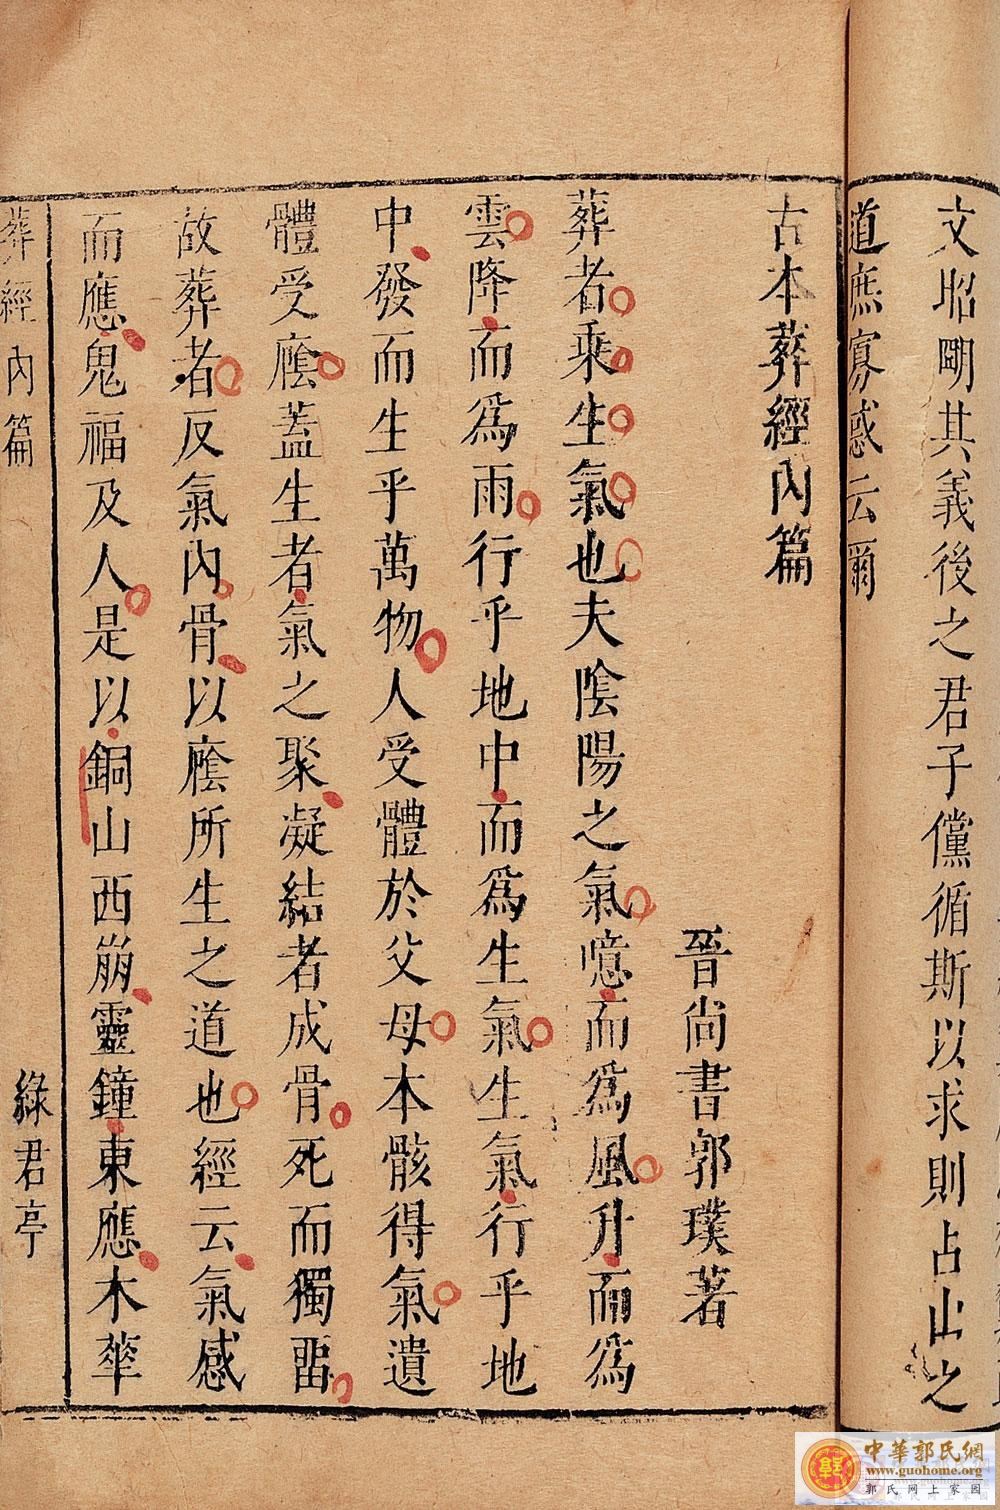 文昭明其義後之君子儻循斯以求則占山之
道庶寡惑云爾
古本葬經內篇
晉尚書郭璞著
葬者乘生氣也夫陰陽之氣噫而為風升而為
雲降而為雨行乎地中而為生氣生氣行乎地
中發而生乎萬物人受體於父母本骸得氣遺
體受廕蓋生者氣之聚凝結者成骨死而獨留
故葬者反氣內骨以廕所生之道也經云氣感
而應鬼福及人是以銅山西崩靈鐘東應木華
葬經內篇
綠君亭
中華郭氏網
www.guohome.org
郭氏网上家园